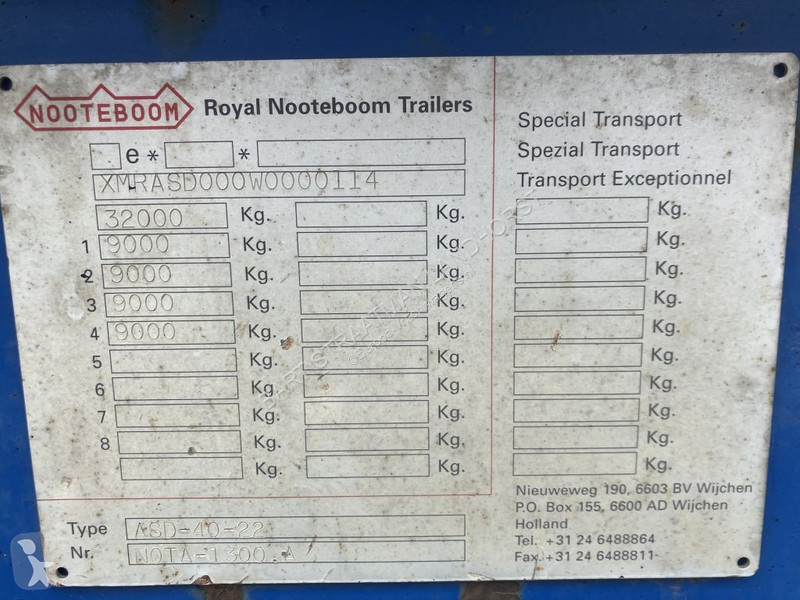 NOOTEBOOM
Royal Nooteboom Trailers
Special Transport
Spezial Transport
Transport Exceptionnel
e* *
XMRASD000W0000114
32000 Kg. Kg. Kg.
1 9000 Kg. Kg. Kg.
2 9000 Kg. Kg. Kg.
3 9000 Kg. Kg. Kg.
4 9000 Kg. Kg. Kg.
5 Kg. Kg. Kg.
6 Kg. Kg. Kg.
7 Kg. Kg. Kg.
8 Kg. Kg. Kg.
Kg. Kg. Kg.
Type ASD-40-22
Nr. WOTA-1300.A
Nieuweweg 190, 6603 BV Wijchen
P.O. Box 155, 6600 AD Wijchen
Holland
Tel. +31 24 6488864
Fax. +31 24 6488811